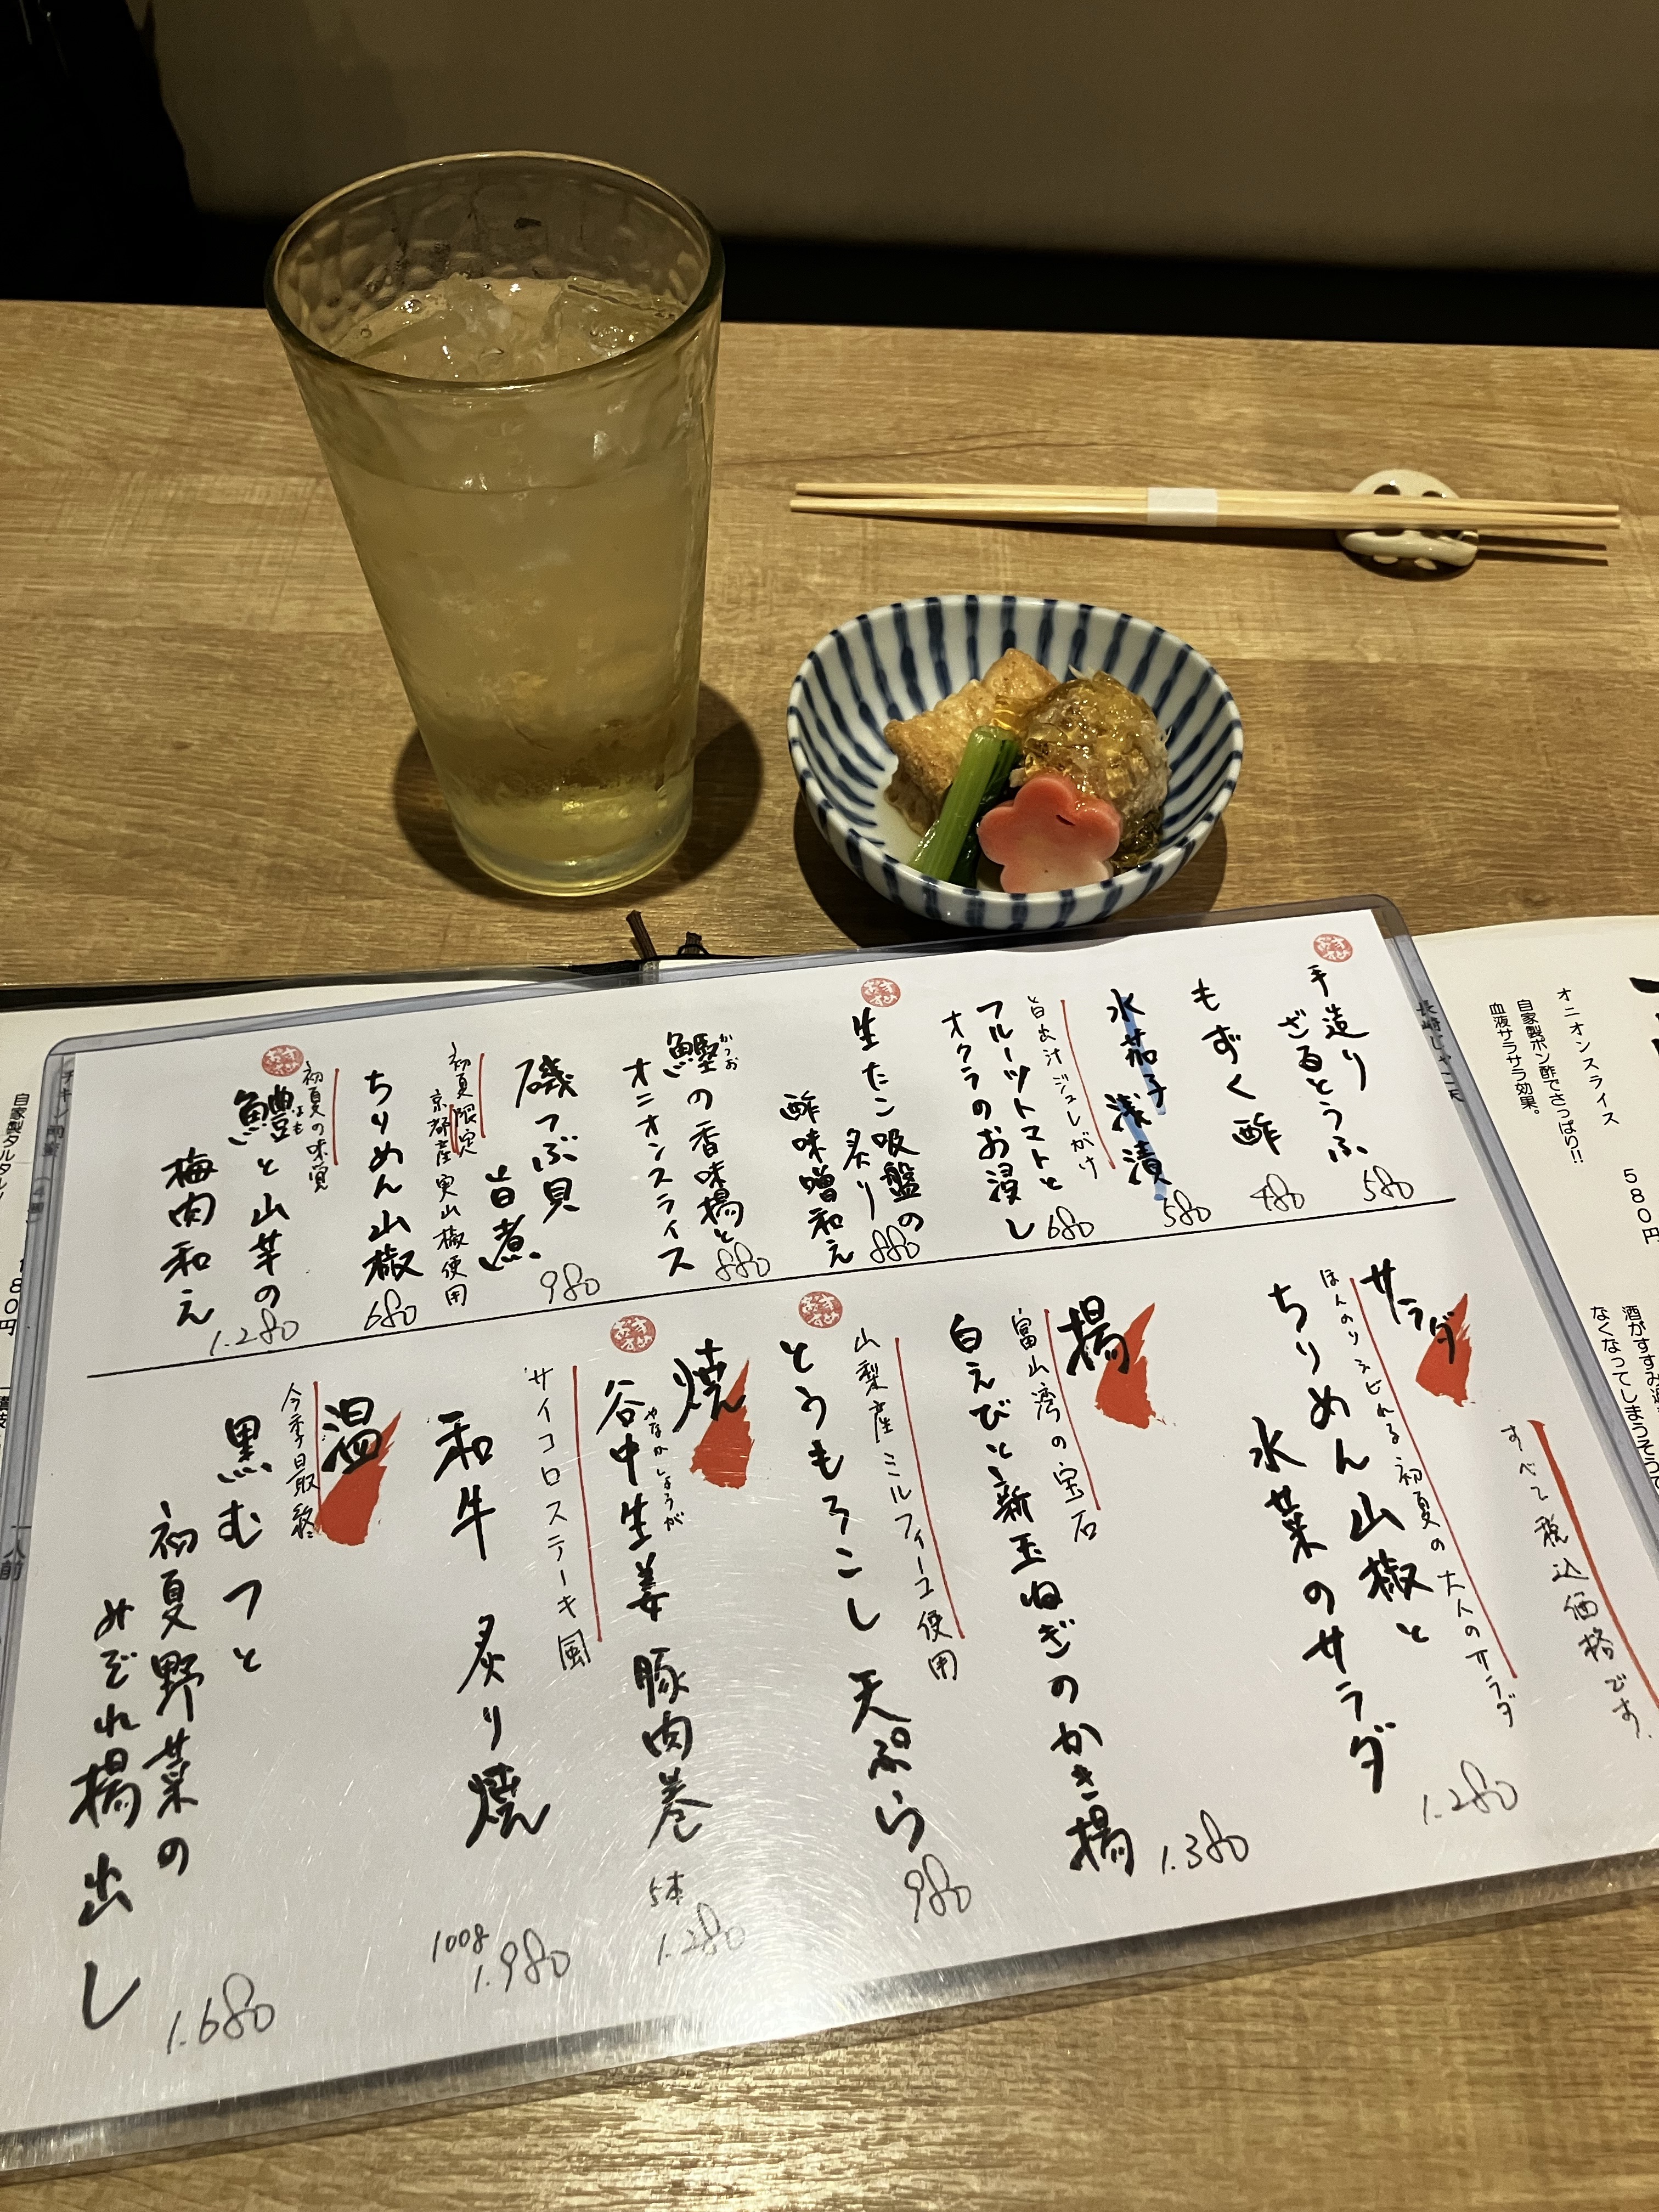 おすすめ
手造り
ざるとうふ
580
もずく酢
480
水茄子 浅漬
580
旨出汁ジュレがけ
フルーツトマトと
オクラのお浸し
680
おすすめ
生たこ吸盤の
炙り
酢味噌和え
880
かつお
鰹の香味揚と
オニオンスライス
880
磯つぶ貝
旨煮
980
初夏限定
京都産実山椒使用
ちりめん山椒
680
初夏の味覚
おすすめ
はも
鱧と山芋の
梅肉和え
1.280
すべて税込価格です.
サラダ
ほんのりシビれる初夏の大人のサラダ
ちりめん山椒と
水菜のサラダ
1.280
揚
富山湾の宝石
白えびと新玉ねぎのかき揚
1.380
山梨産ミルフィーユ使用
おすすめ
とうもろこし 天ぷら
980
焼
おすすめ
やなかしょうが
谷中生姜 豚肉巻
5本
1.280
サイコロステーキ風
和牛 炙り焼
100g
1.980
温
今季最終
黒むつと
初夏野菜の
みぞれ揚出し
1.680
オニオンスライス
580円
自家製ポン酢でさっぱり!!
血液サラサラ効果。
長崎じゃこ天
酒がすすみ過
なくなってしまうそう
自家製タルタル
80円
一人前